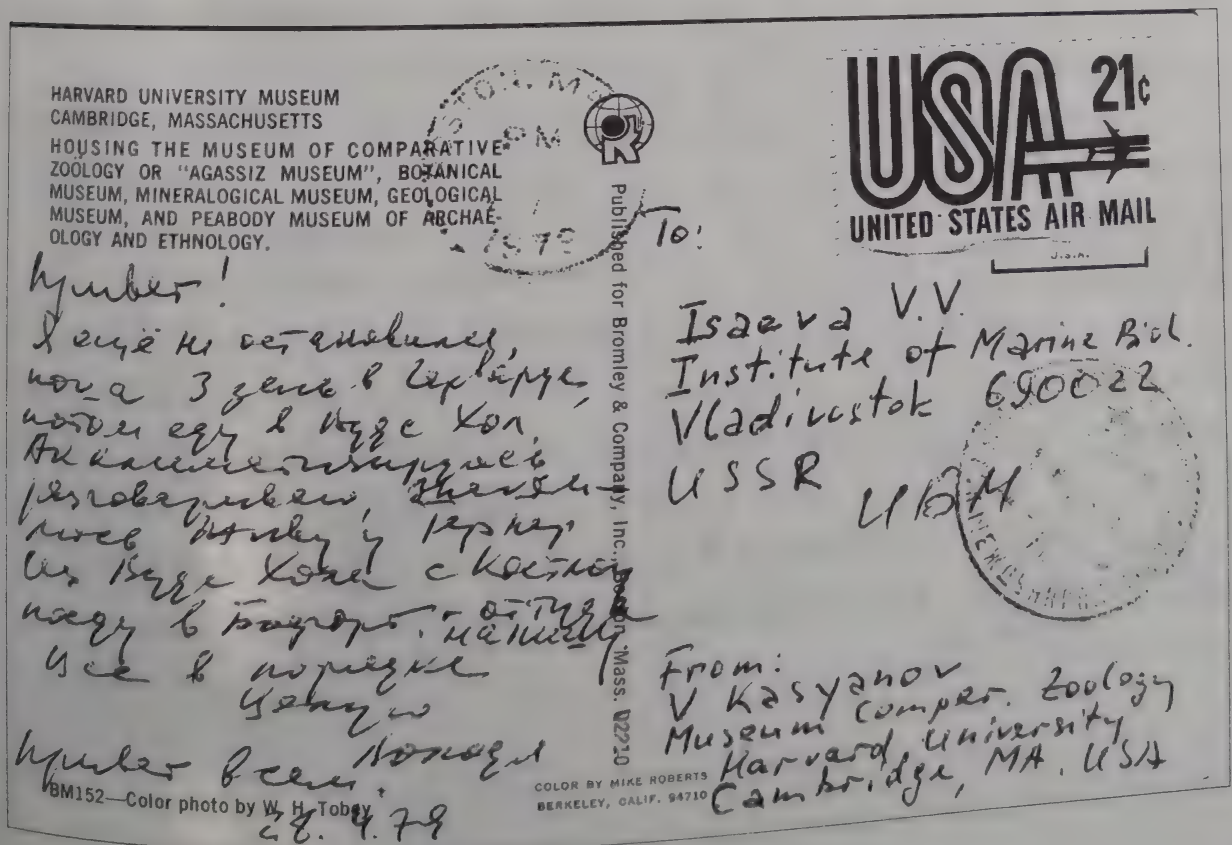 HARVARD UNIVERSITY MUSEUM
CAMBRIDGE, MASSACHUSETTS
HOUSING THE MUSEUM OF COMPARATIVE
ZOOLOGY OR "AGASSIZ MUSEUM", BOTANICAL
MUSEUM, MINERALOGICAL MUSEUM, GEOLOGICAL
MUSEUM, AND PEABODY MUSEUM OF ARCHAE-
OLOGY AND ETHNOLOGY.
Привет!
Я ещё не остановился,
пока 3 день в Гарварде,
потом еду в Вудс Хол.
Акклиматизируюсь
разговариваю, знаком-
люсь Живу у Тернер
Из Вудс Хола с Костлоу
поеду в Бофорт. - оттуда
напишу
Все в порядке
Целую
Володя
Привет всем.
BM152—Color photo by W. H. Tobey
28. 4. 79
PM
1979
Published for Bromley & Company, Inc., Boston, Mass. 02210
COLOR BY MIKE ROBERTS
BERKELEY, CALIF. 94710
USA 21c
UNITED STATES AIR MAIL
To:
Isaeva V.V.
Institute of Marine Biol.
Vladivostok 690022
USSR
ИБМ
From:
V Kasyanov
Museum Compar. Zoology
Harvard, University
Cambridge, MA, USA